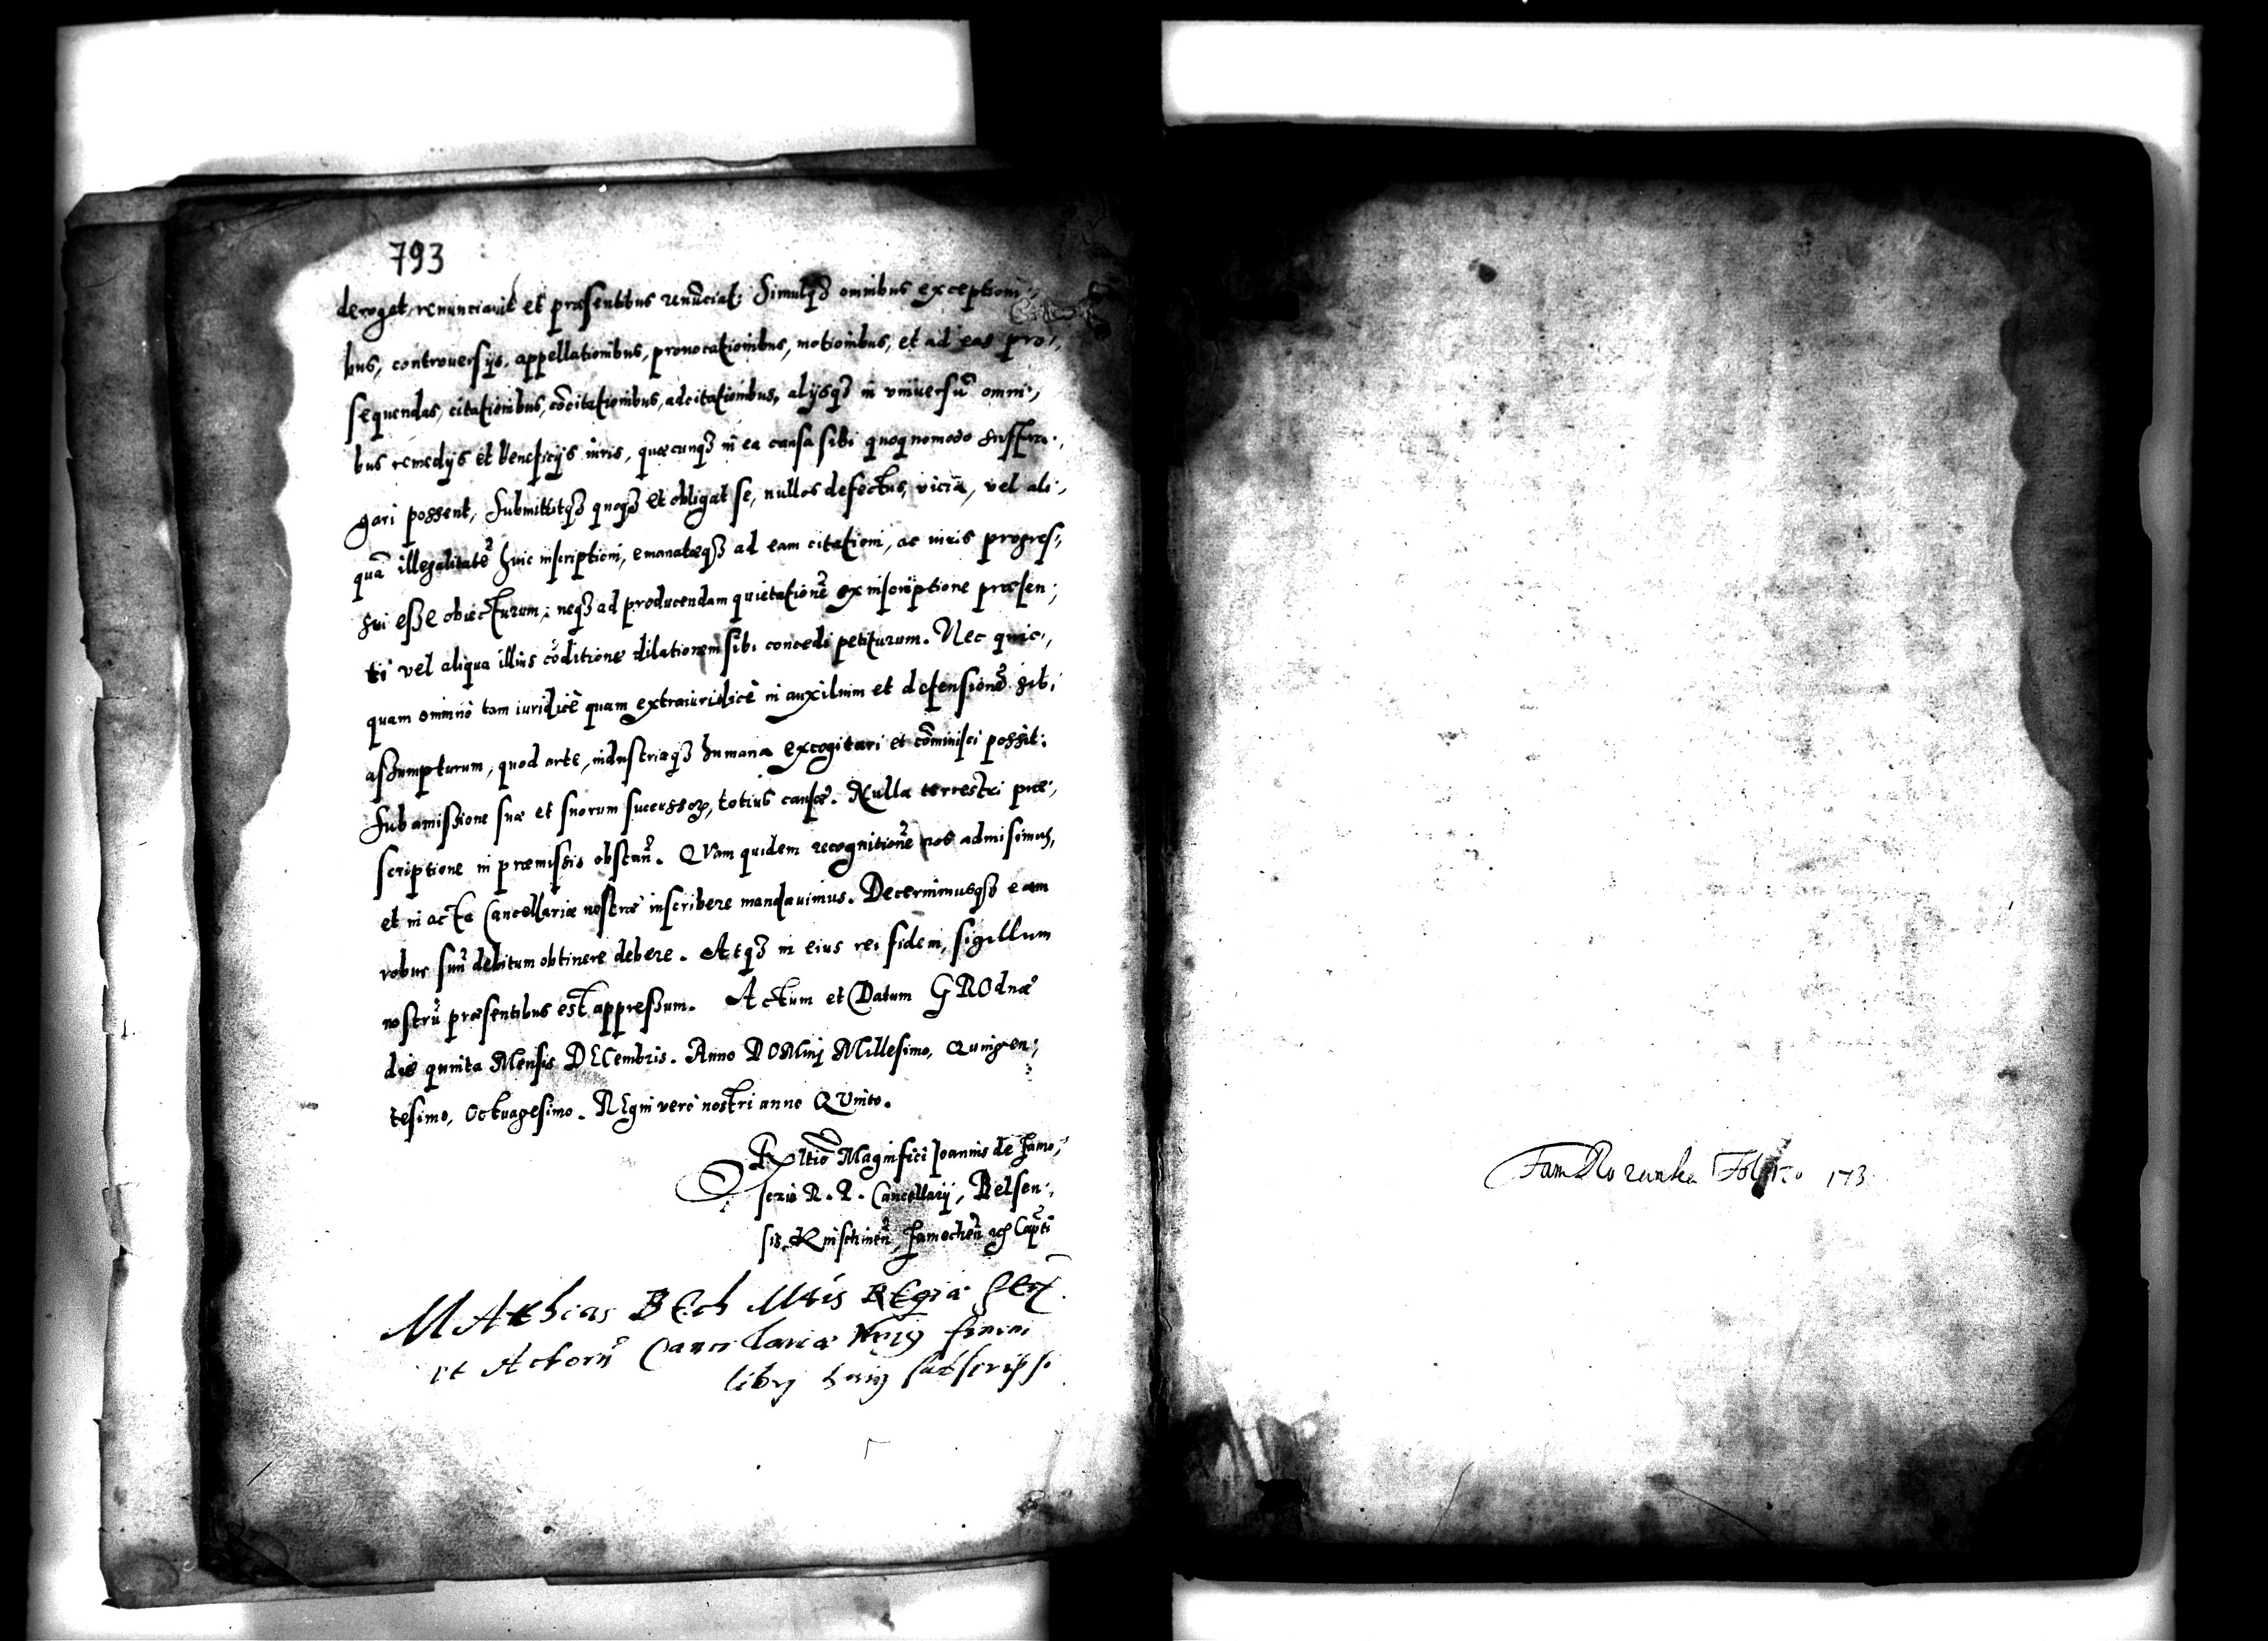 793
derogat, renunciavit et præsentibus renũciat: Simulq₃ omnibus exceptioni⸗
bus, controversÿs, appellationibus, provocationibus, motionibus, et ad eas pro⸗
sequendas, citationibus, cõcitationibus, adcitationibus, alÿsq₃ in vniversũ omni⸗
bus remedÿs et beneficÿs iuris, quæcunq₃ in ea causa sibi quoquomodo suffra⸗
gari possent, Submittitq₃ quoq₃ et obligat se, nullos defectus, vicia, vel ali⸗
quã illegalitatẽ huic inscriptioni, emanatæq₃ ad eam citationi, ac iuris progres⸗
sui esse obiecturum; neq₃ ad producendam quietationẽ ex inscriptione præsen⸗
ti vel aliqua illius cõditione dilationem sibi concedi petiturum. Nec quic⸗
quam omninò tam iuridicè quam extraiuridicè in auxilium et defensionẽ sibi
assumpturum, quod arte, industriaq₃ humana excogitari et cõminisci possit:
Sub amissione suæ et suorum successoꝝ, totius causæ. Nulla terrestri præ⸗
scriptione in præmissis obstañ. QVam quidem recognitionẽ nos admisimus,
et in acta Cancellariæ nostræ inscribere mandavimus. Decernimusq₃ eam
robur suũ debitum obtinere debere. Atq₃ in eius rei fidem, sigillum
nostrũ præsentibus est appressum. Actum et Datum GROdnæ
die quinta Mensis DECembris. Anno DOMinj Millesimo, Quingen⸗
tesimo, Octuagesimo. REgni verò nostri anno QVinto.
Rltio Magnifici Joannis de Zamo⸗
scio R. P. Cancellarÿ, Belsen⸗
sis, Knischineñ, Zamecheñ Capti
MAthias BEch Mtis REgiæ
et Actorũ Cancellariæ huiꝰ
librj huiꝰ subscripsi
173